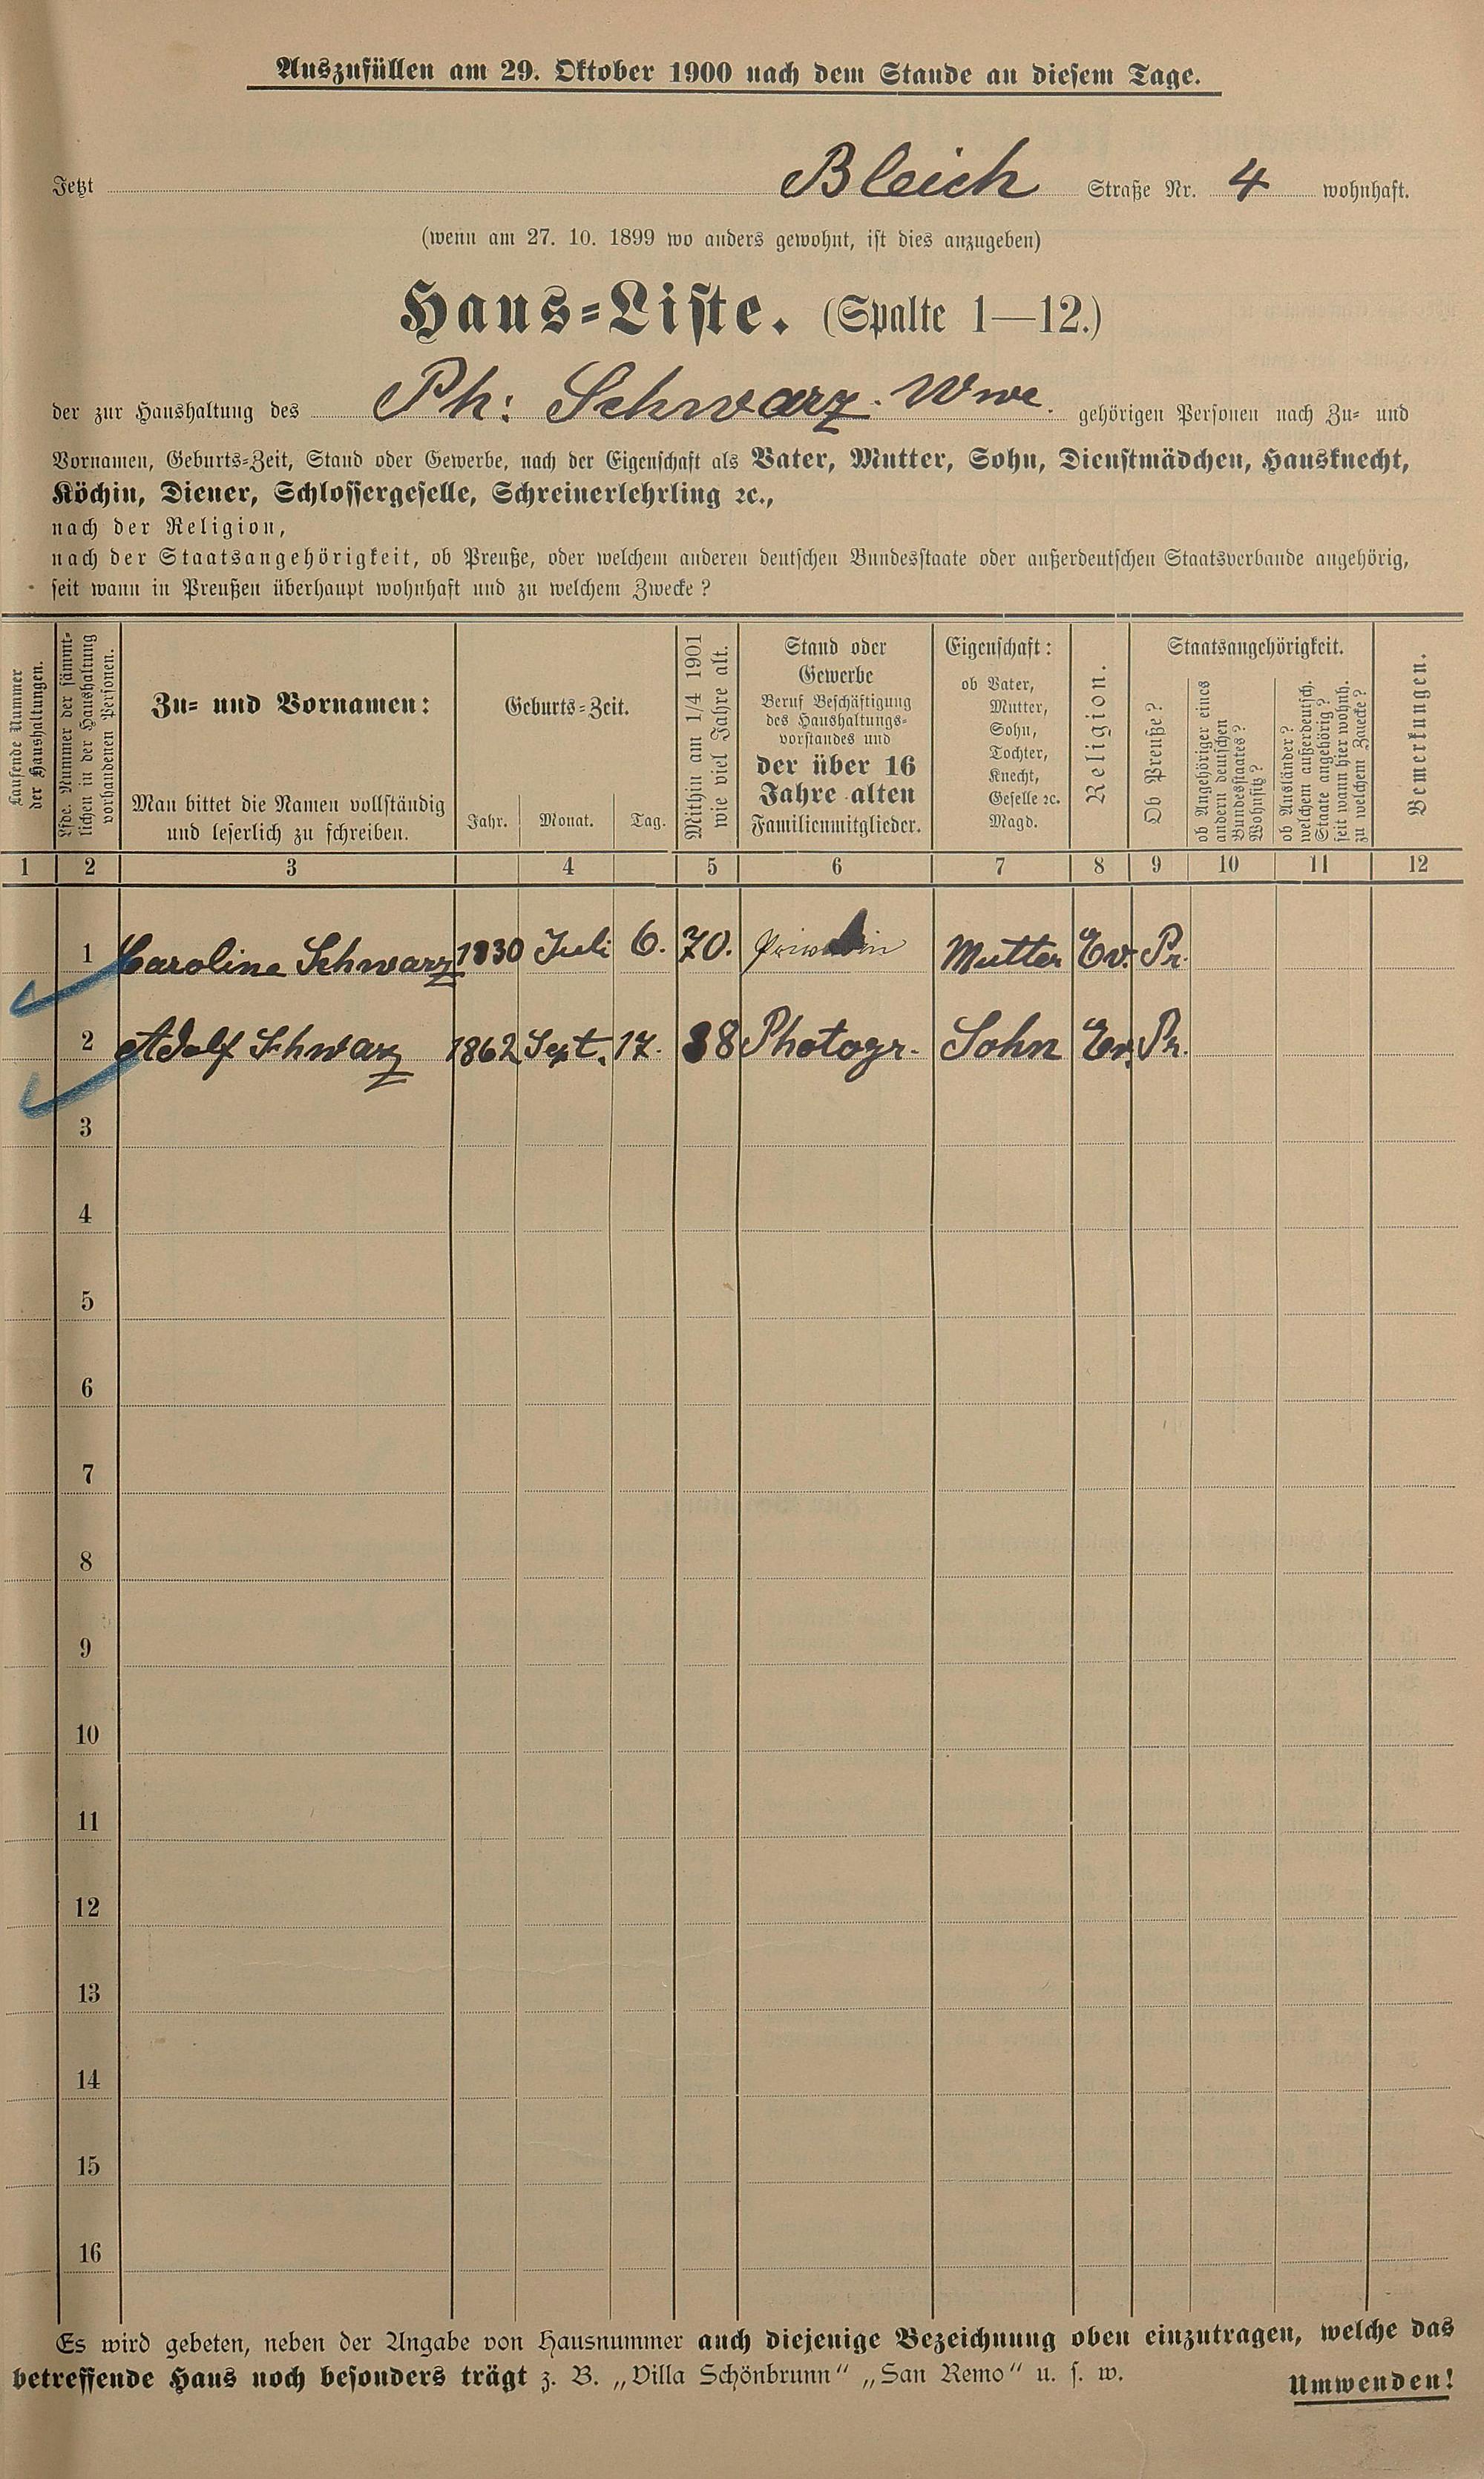 Auszufüllen am 29. Oktober 1900 nach dem Stande an diesem Tage.
Jetzt Bleich Straße Nr. 4 wohnhaft.
(wenn am 27. 10. 1899 wo anders gewohnt, ist dies anzugeben)
Haus=Liste. (Spalte 1—12.)
der zur Haushaltung des Ph: Schwarz. Wwe. gehörigen Personen nach Zu= und
Vornamen, Geburts=Zeit, Stand oder Gewerbe, nach der Eigenschaft als Vater, Mutter, Sohn, Dienstmädchen, Hausknecht,
Köchin, Diener, Schlossergeselle, Schreinerlehrling ꝛc.,
nach der Religion,
nach der Staatsangehörigkeit, ob Preuße, oder welchem anderen deutschen Bundesstaate oder außerdeutschen Staatsverbande angehörig,
seit wann in Preußen überhaupt wohnhaft und zu welchem Zwecke?
Laufende Nummer
der Haushaltungen.
Lfde. Nummer der sämmt=
lichen in der Haushaltung
vorhandenen Personen.
Zu= und Vornamen:
Man bittet die Namen vollständig
und leserlich zu schreiben.
Geburts=Zeit.
Jahr. Monat. Tag.
Mithin am 1/4 1901
wie viel Jahre alt.
Stand oder
Gewerbe
Beruf Beschäftigung
des Haushaltungs=
vorstandes und
der über 16
Jahre alten
Familienmitglieder.
Eigenschaft:
ob Vater,
Mutter,
Sohn,
Tochter,
Knecht,
Geselle ꝛc.
Magd.
Religion.
Staatsangehörigkeit.
Ob Preuße?
ob Angehöriger eines
andern deutschen
Bundesstaates?
Wohnsitz?
ob Ausländer?
welchem außerdeutsch.
Staate angehörig?
seit wann hier wohnh.
zu welchem Zwecke?
Bemerkungen.
1 2 3 4 5 6 7 8 9 10 11 12
1 Caroline Schwarz 1830 Juli 6. 70. Mutter Ev. Pr.
2 Adolf Schwarz 1862 Sept. 17. 38 Photogr. Sohn Ev. Pr.
3
4
5
6
7
8
9
10
11
12
13
14
15
16
Es wird gebeten, neben der Angabe von Hausnummer auch diejenige Bezeichnung oben einzutragen, welche das
betreffende Haus noch besonders trägt z. B. „Villa Schönbrunn“ „San Remo“ u. s. w.
Umwenden!